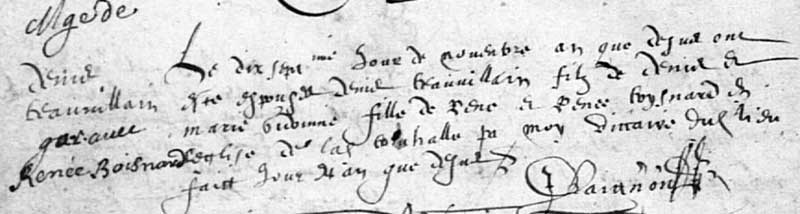 Mg de
denis
teauvillain
gar avec
Renée Boisnard
Le dix sept me Jour de novembre an que desus ont
este espouses denis teauvillain filz de denis et
marie guionne fille de Rene et Renee boysnard en
leglise de par moy viccaire dud lieu
faict Jour et an que desus